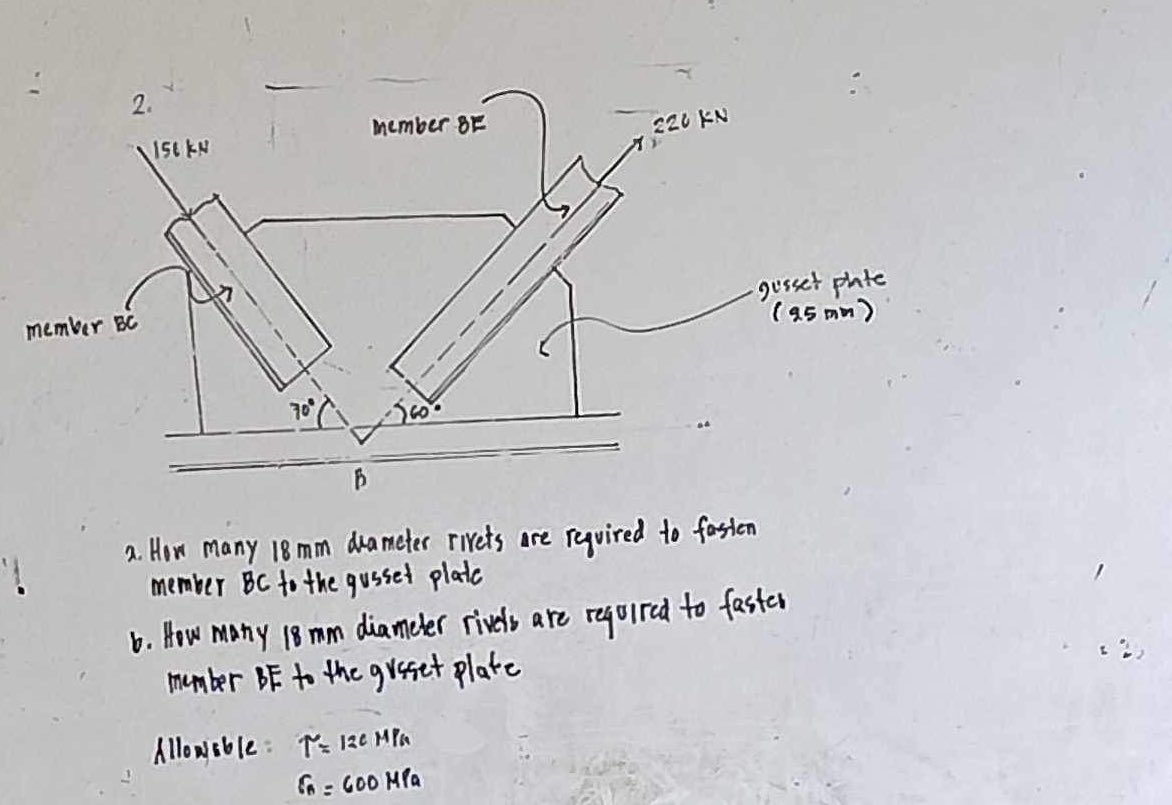 2.
member BE
220 KN
150 KN
gusset plate
(25 mm)
member BC
70°
60°
B
a. How many 18 mm diameter rivets are required to fasten
member BC to the gusset plate
b. How many 18 mm diameter rivets are required to fasten
member BE to the gusset plate
Allowable: τ = 120 MPa
σn = 600 MPa